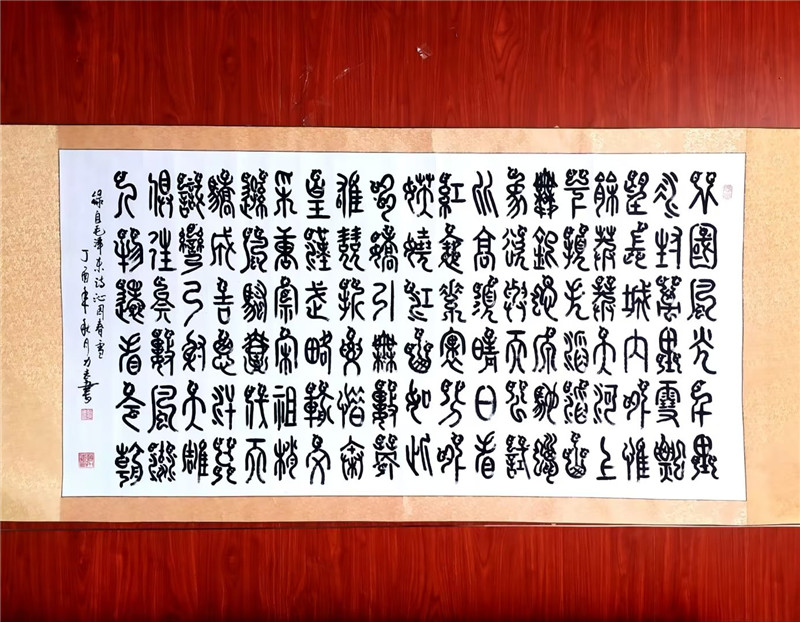 北國風光千里
冰封萬里雪飄
望長城内外惟
餘莽莽大河上
下頓失滔滔山
舞銀蛇原馳蠟
象欲與天公試
比高須晴日看
紅裝素裹分外
妖嬈江山如此
多嬌引無數英
雄競折腰惜秦
皇漢武略輸文
采唐宗宋祖稍
遜風騷一代天
驕成吉思汗只
識彎弓射大雕
俱往矣數風流
人物還看今朝
録自毛澤東詩沁园春雪
丁酉年秋月書